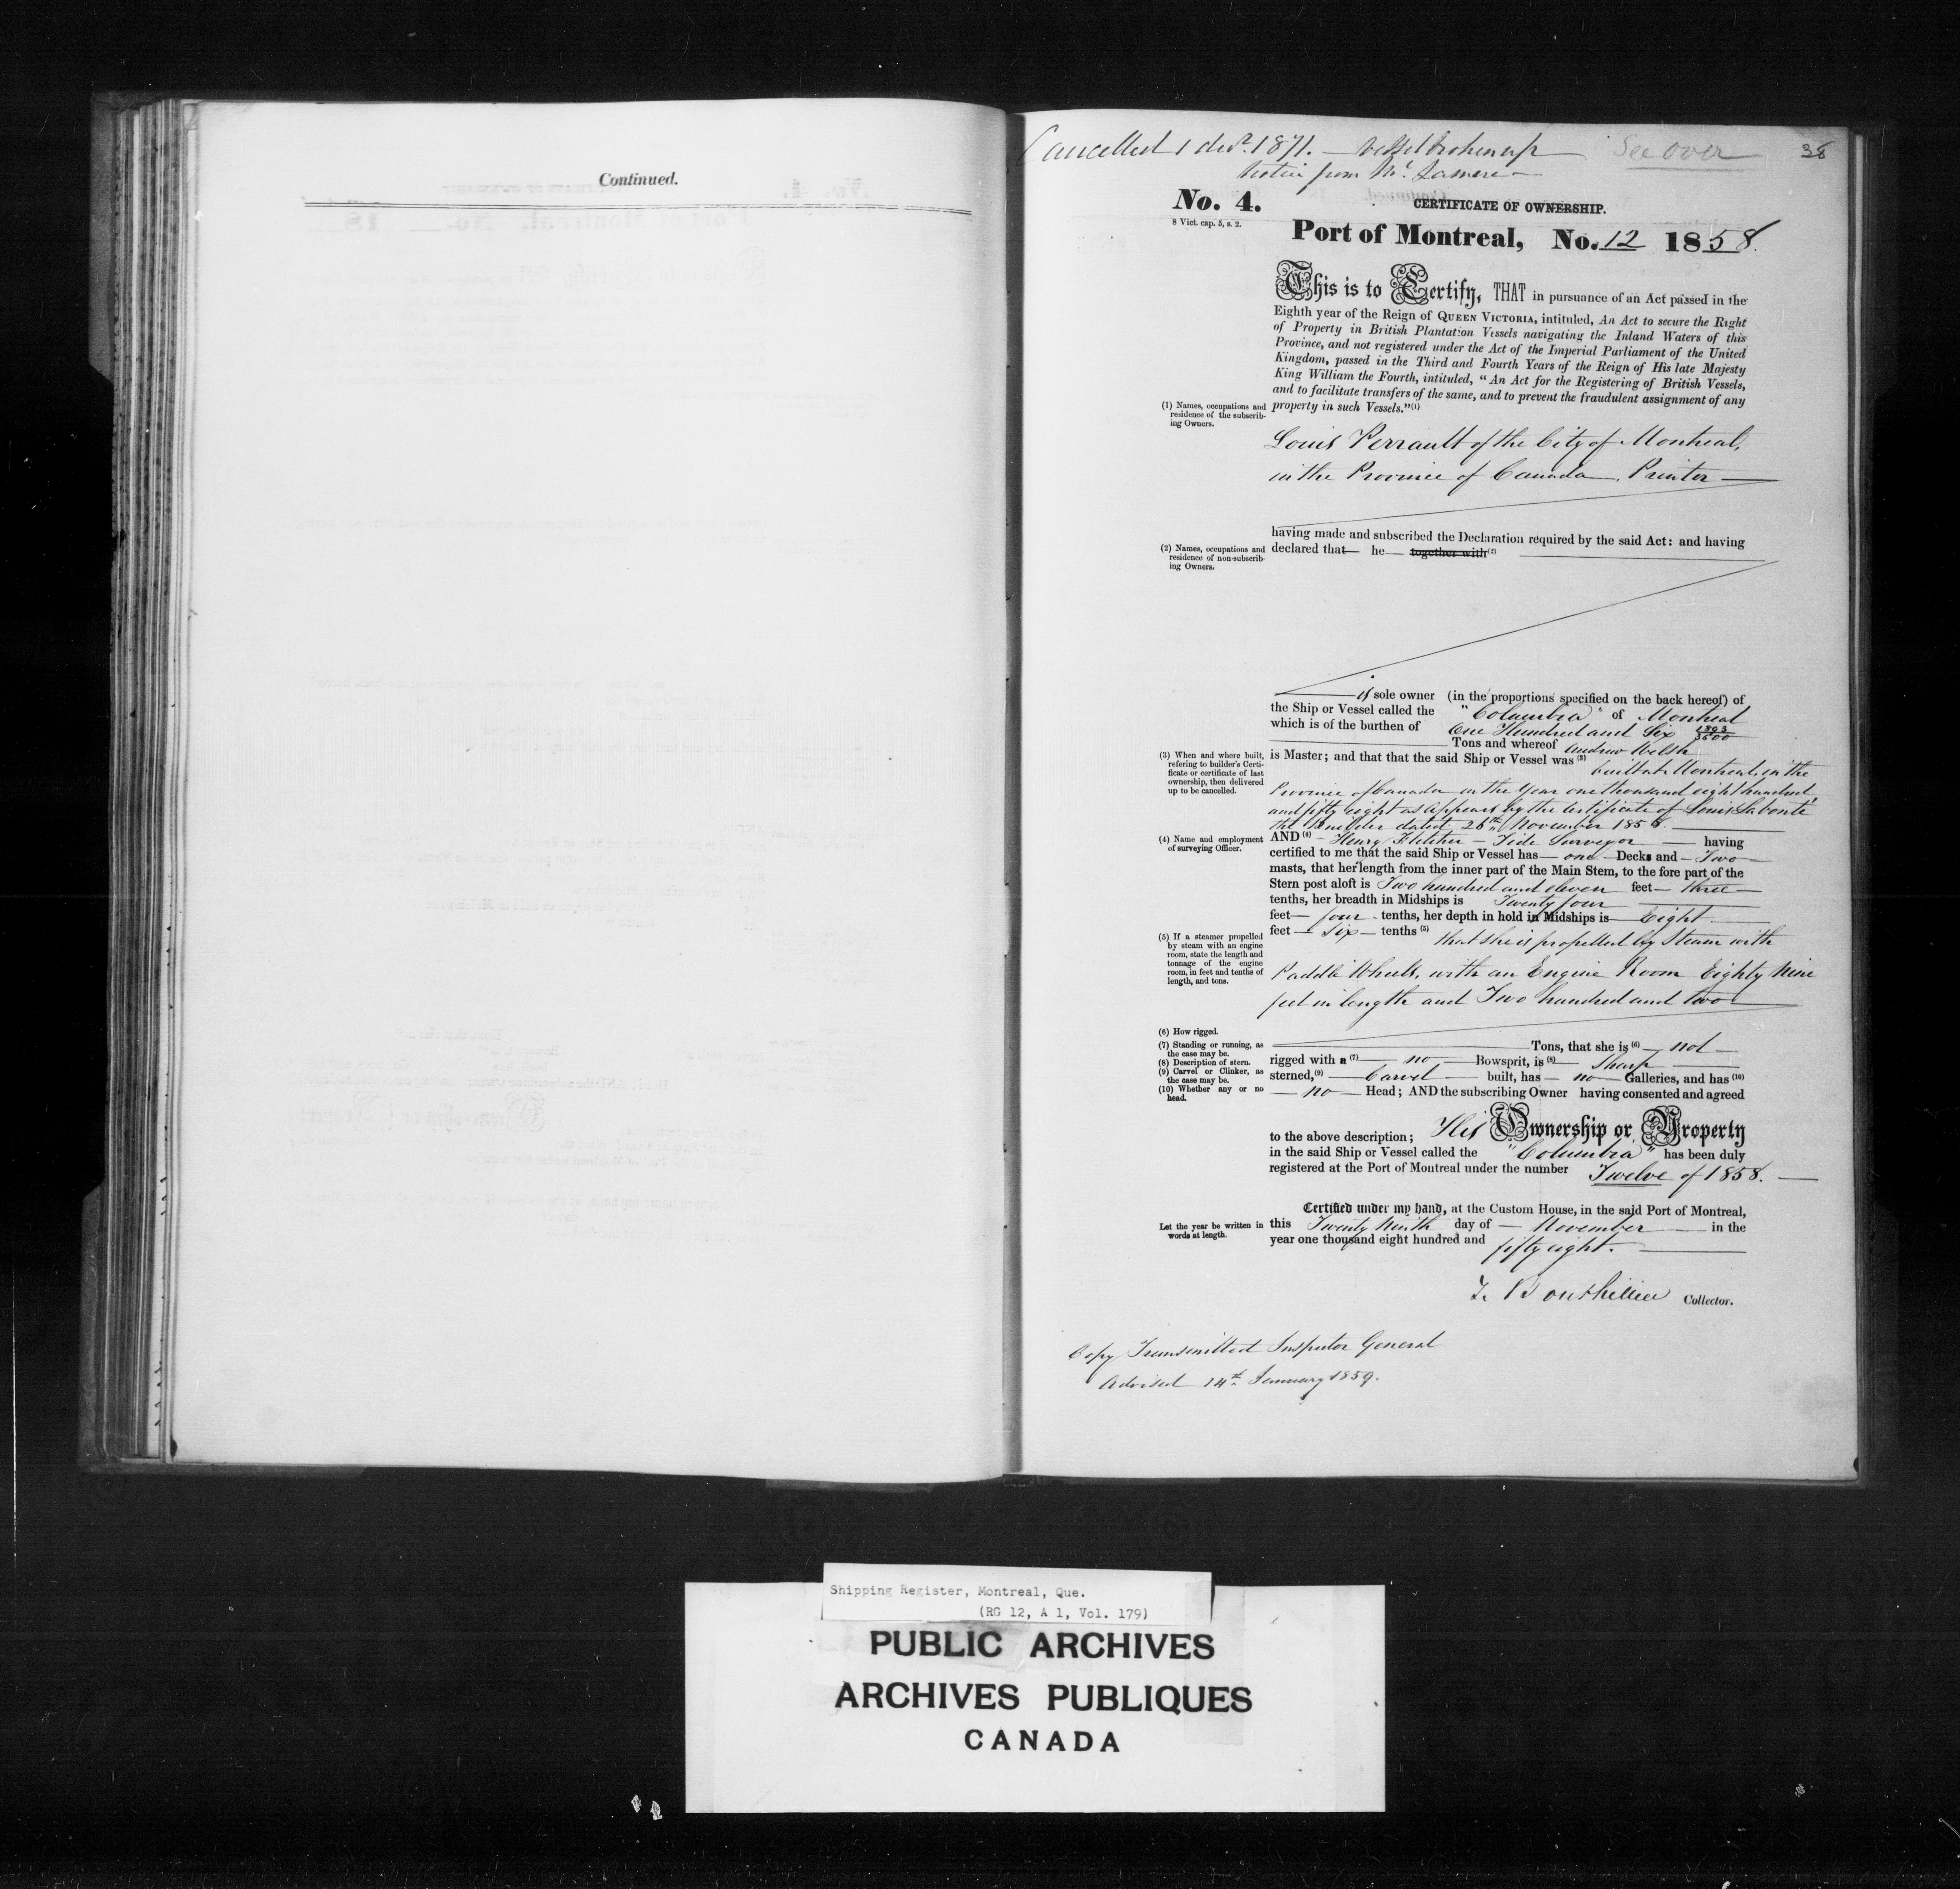 Continued.
Cancelled 1 decr. 1871. — Vessel broken up — See over 38
Notice from Mr. Lamere —
No. 4. CERTIFICATE OF OWNERSHIP.
8 Vict. cap. 5, s. 2.
Port of Montreal, No. 12 1858.
This is to Certify, THAT in pursuance of an Act passed in the
Eighth year of the Reign of QUEEN VICTORIA, intituled, An Act to secure the Right
of Property in British Plantation Vessels navigating the Inland Waters of this
Province, and not registered under the Act of the Imperial Parliament of the United
Kingdom, passed in the Third and Fourth Years of the Reign of His late Majesty
King William the Fourth, intituled, "An Act for the Registering of British Vessels,
and to facilitate transfers of the same, and to prevent the fraudulent assignment of any
property in such Vessels."(1)
(1) Names, occupations and
residence of the subscrib-
ing Owners.
Louis Perrault of the City of Montreal,
in the Province of Canada, Printer —
having made and subscribed the Declaration required by the said Act: and having
declared that — he — together with (2)
(2) Names, occupations and
residence of non-subscrib-
ing Owners.
is sole owner (in the proportions specified on the back hereof) of
the Ship or Vessel called the "Columbia" of Montreal
which is of the burthen of One Hundred and Six
Tons and whereof Andrew Welsh
is Master; and that that the said Ship or Vessel was (3) built at Montreal, in the
(3) When and where built,
refering to builder's Certi-
ficate or certificate of last
ownership, then delivered
up to be cancelled.
Province of Canada in the Year one thousand eight hundred
and fifty eight as appears by the Certificate of Louis Labonté
the Builder dated 26th November 1858.
AND (4) — Henry Fletcher — Tide Surveyor — having
(4) Name and employment
of surveying Officer.
certified to me that the said Ship or Vessel has — one — Decks and — Two —
masts, that her length from the inner part of the Main Stem, to the fore part of the
Stern post aloft is Two hundred and eleven feet — three —
tenths, her breadth in Midships is Twenty four
feet — four - tenths, her depth in hold in Midships is — Eight
feet — Six — tenths (5) that she is propelled by Steam with
(5) If a steamer propelled
by steam with an engine
room, state the length and
tonnage of the engine
room, in feet and tenths of
length, and tons.
Paddle Wheels, with an Engine Room Eighty Nine
feet in length and Two hundred and two
(6) How rigged.
(7) Standing or running, as
the case may be.
(8) Description of stern.
(9) Carvel or Clinker, as
the case may be.
(10) Whether any or no
head.
Tons, that she is (6) — not —
rigged with a (7) — no — Bowsprit, is (8) — Sharp
sterned, (9) — Carvel — built, has — no — Galleries, and has (10)
— no — Head; AND the subscribing Owner having consented and agreed
to the above description; His Ownership or Property
in the said Ship or Vessel called the "Columbia" has been duly
registered at the Port of Montreal under the number Twelve of 1858. —
Certified under my hand, at the Custom House, in the said Port of Montreal,
Let the year be written in
words at length.
this Twenty Ninth day of — November — in the
year one thousand eight hundred and fifty eight.
T. Bouthillier Collector.
Copy Transmitted Inspector General
Advised 14th January 1859.
Shipping Register, Montreal, Que.
(RG 12, A 1, Vol. 179)
PUBLIC ARCHIVES
ARCHIVES PUBLIQUES
CANADA